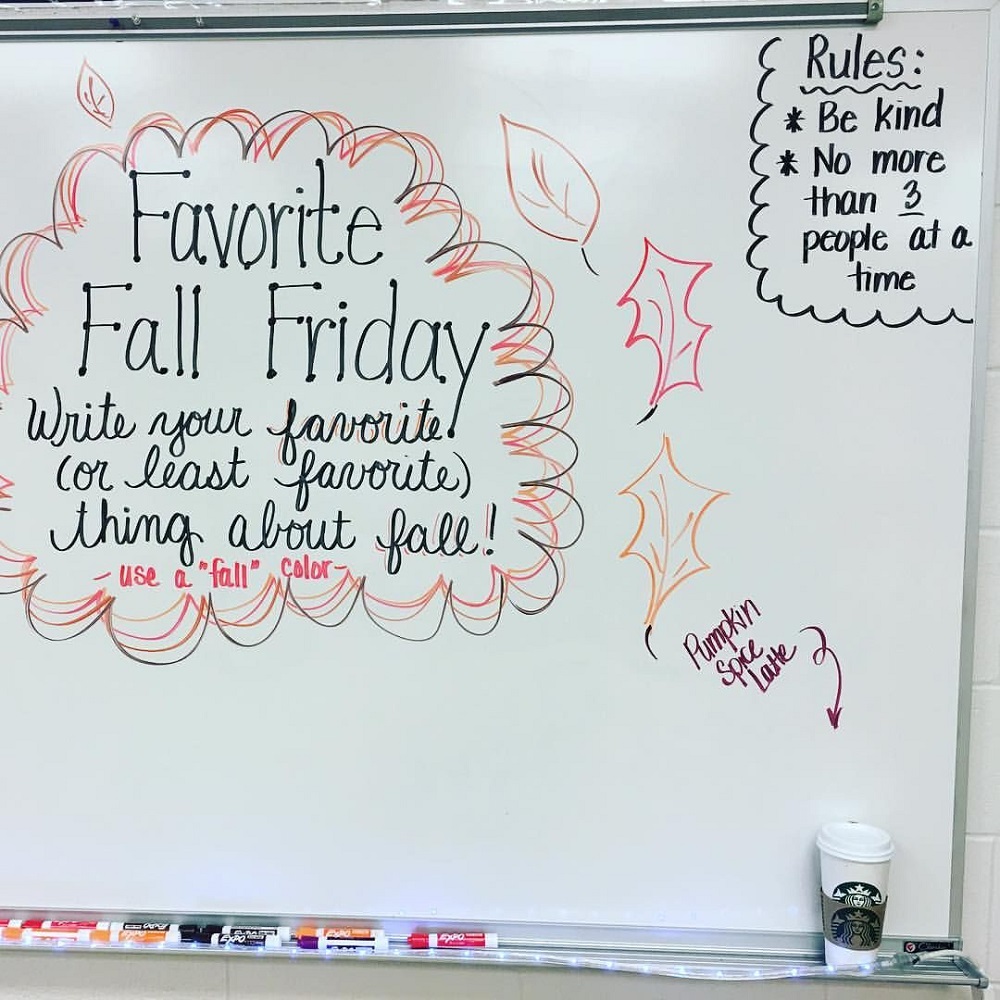 Favorite
Fall Friday
Write your favorite
(or least favorite)
thing about fall!
- use a "fall" color -
Rules:
* Be kind
* No more
than 3
people at a
time
Pumpkin
Spice
Latte
EXPO
EXPO
EXPO
EXPO
EXPO